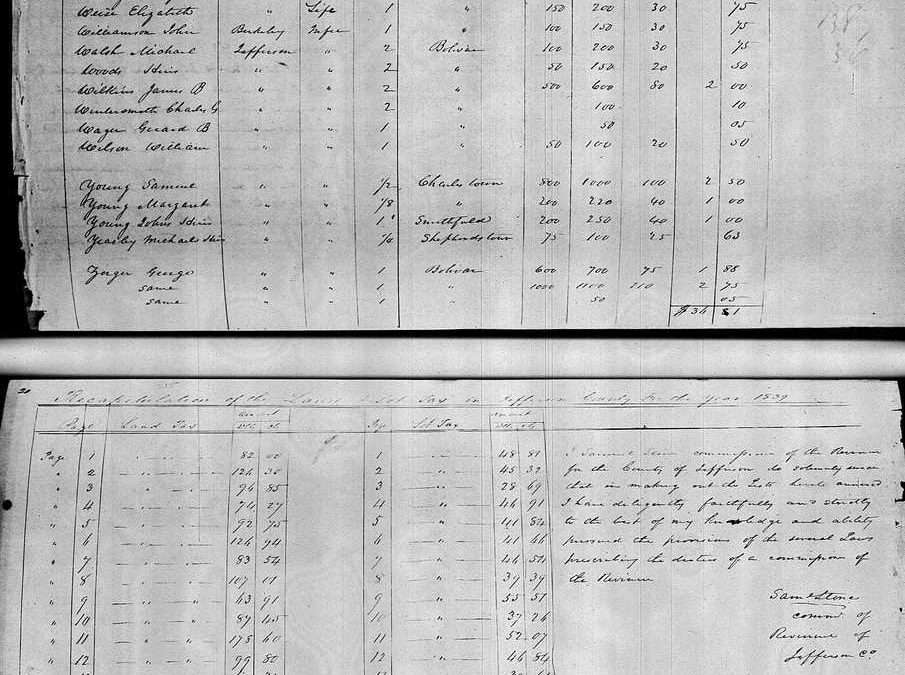 Weise Elizabeth " Life 1 " 150 200 30 75
Williamson John Berkeley 1 " 100 150 30 75
Walsh Michael Jefferson " 2 Bolivar 100 200 30 75
Woods " " 2 " 50 150 20 50
Wilkins James B " " 2 " 500 600 80 2 00
Wintersmith Charles G " " 2 " 100 10
Wager Gerard B " " 1 " 50 05
Wilson William " " 1 " 50 100 20 50
Young Samuel " " 1/2 Charlestown 800 1000 100 2 50
Young Margaret " " 1/8 " 200 220 40 1 00
Young Johns " " 1 Smithfield 200 250 40 1 00
Michaels " " Shepherdstown 75 100 25 63
George " " 1 Bolivar 600 700 75 1 88
same " " 1 " 1000 1100 2 75
same " " 1 " 50 05
$
20
Recapitulation of the Land & Lot Tax in Jefferson County for the year 1839
Page Land Tax Amount Page Lot Tax Amount
Dlls cts Dlls cts
Page 1 82 00 1 48 81 I Samuel Stone commissioner of the Revenue
" 2 126 30 2 45 32 for the County of Jefferson do solemnly swear
" 3 94 85 3 28 69 that in making out the Lists hereto annexed
" 4 74 27 4 46 91 I have diligently faithfully and strictly
" 5 92 75 5 41 84 to the best of my knowledge and ability
" 6 126 94 6 41 46 pursued the provisions of the several Laws
" 7 83 54 7 46 51 prescribing the duties of a commissioner of
" 8 107 11 8 39 39 the Revenue
" 9 43 91 9 55 51 Saml Stone
" 10 89 45 10 37 26 commr of
" 11 175 60 11 52 07 Revenue of
" 12 99 80 12 46 84 Jefferson Co